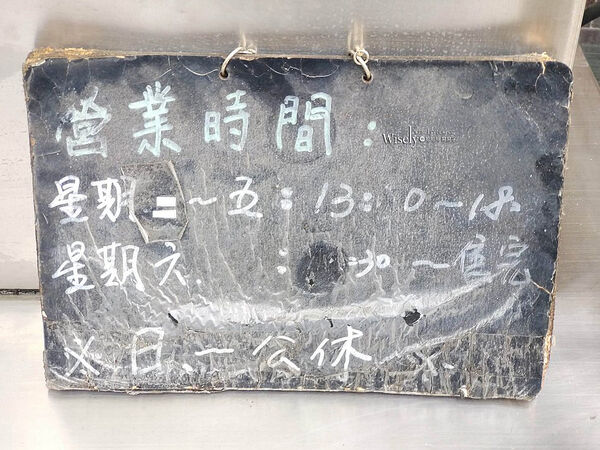 營業時間：
Wisely
星期二～五：13：0～18
星期六：：30～售完
※日、一公休※